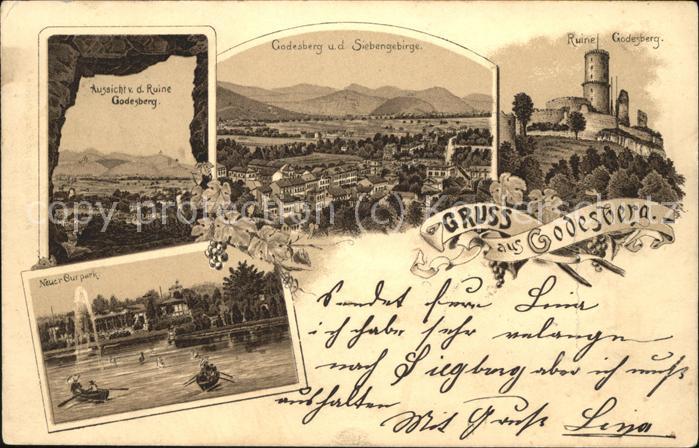 Godesberg u. d. Siebengebirge.
Ruine Godesberg.
Aussicht v. d. Ruine
Godesberg.
GRUSS
aus Godesberg.
Neuer Curpark.
Sendet Lina
ich habe sehr
nach Siegburg aber ich muß
aushalten
Mit Gruß Lina